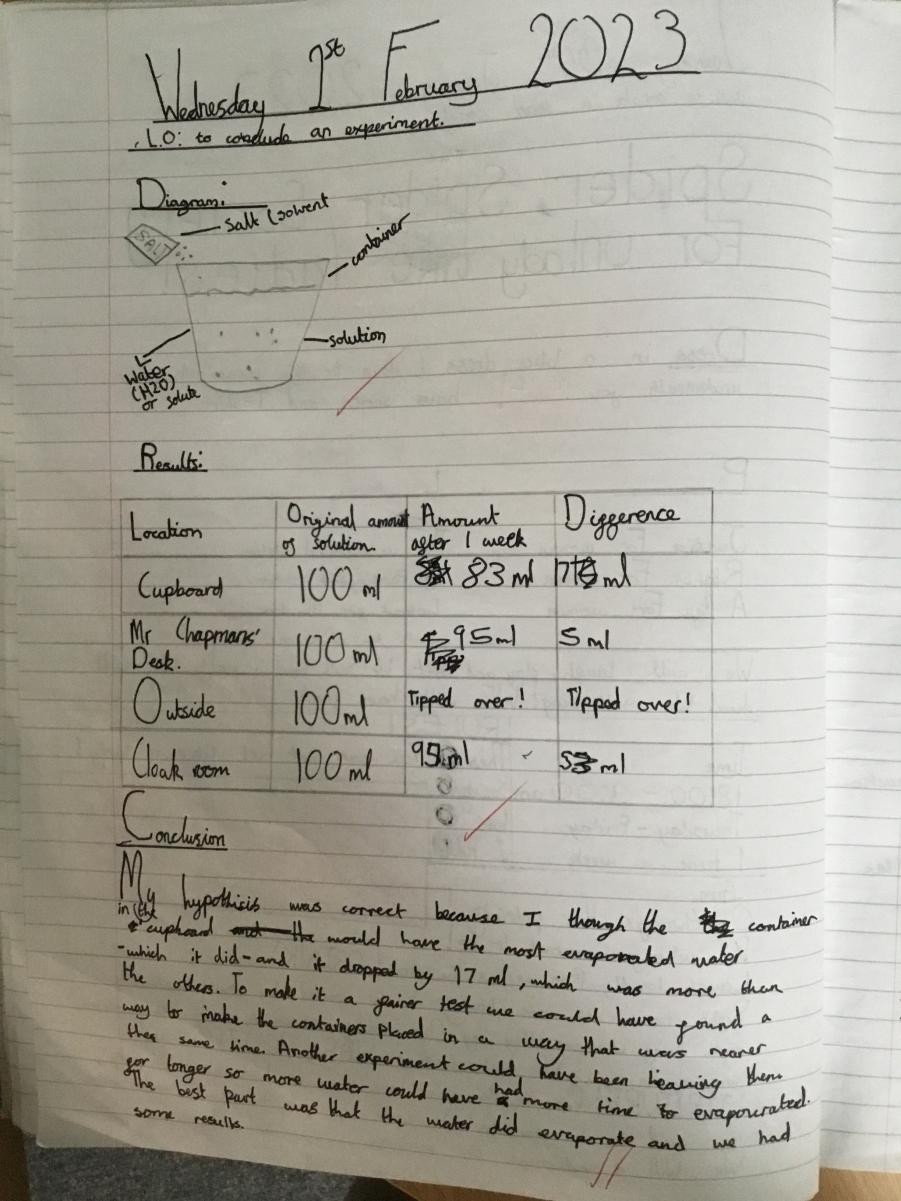 Wednesday 1st February 2023
L.O: to conclude an experiment.
Diagram:
Salt (solvent
SALT
container
solution
Water
(H2O)
or solute
Results:
Location
Original amount of solution.
Amount after 1 week
Difference
Cupboard
100 ml
83 ml
17 ml
Mr Chapmans' Desk.
100 ml
95ml
5 ml
Outside
100ml
Tipped over!
Tipped over!
Cloak room
100 ml
95ml
5 ml
Conclusion
My hypothisis was correct because I though the container
in the cupboard would have the most evaporated water
-which it did-and it dropped by 17 ml, which was more than
the others. To make it a fairer test we could have found a
way to make the containers placed in a way that was nearer
the same time. Another experiment could, have been leaving them
for longer so more water could have had more time to evapourated.
The best part was that the water did evaporate and we had
some results.